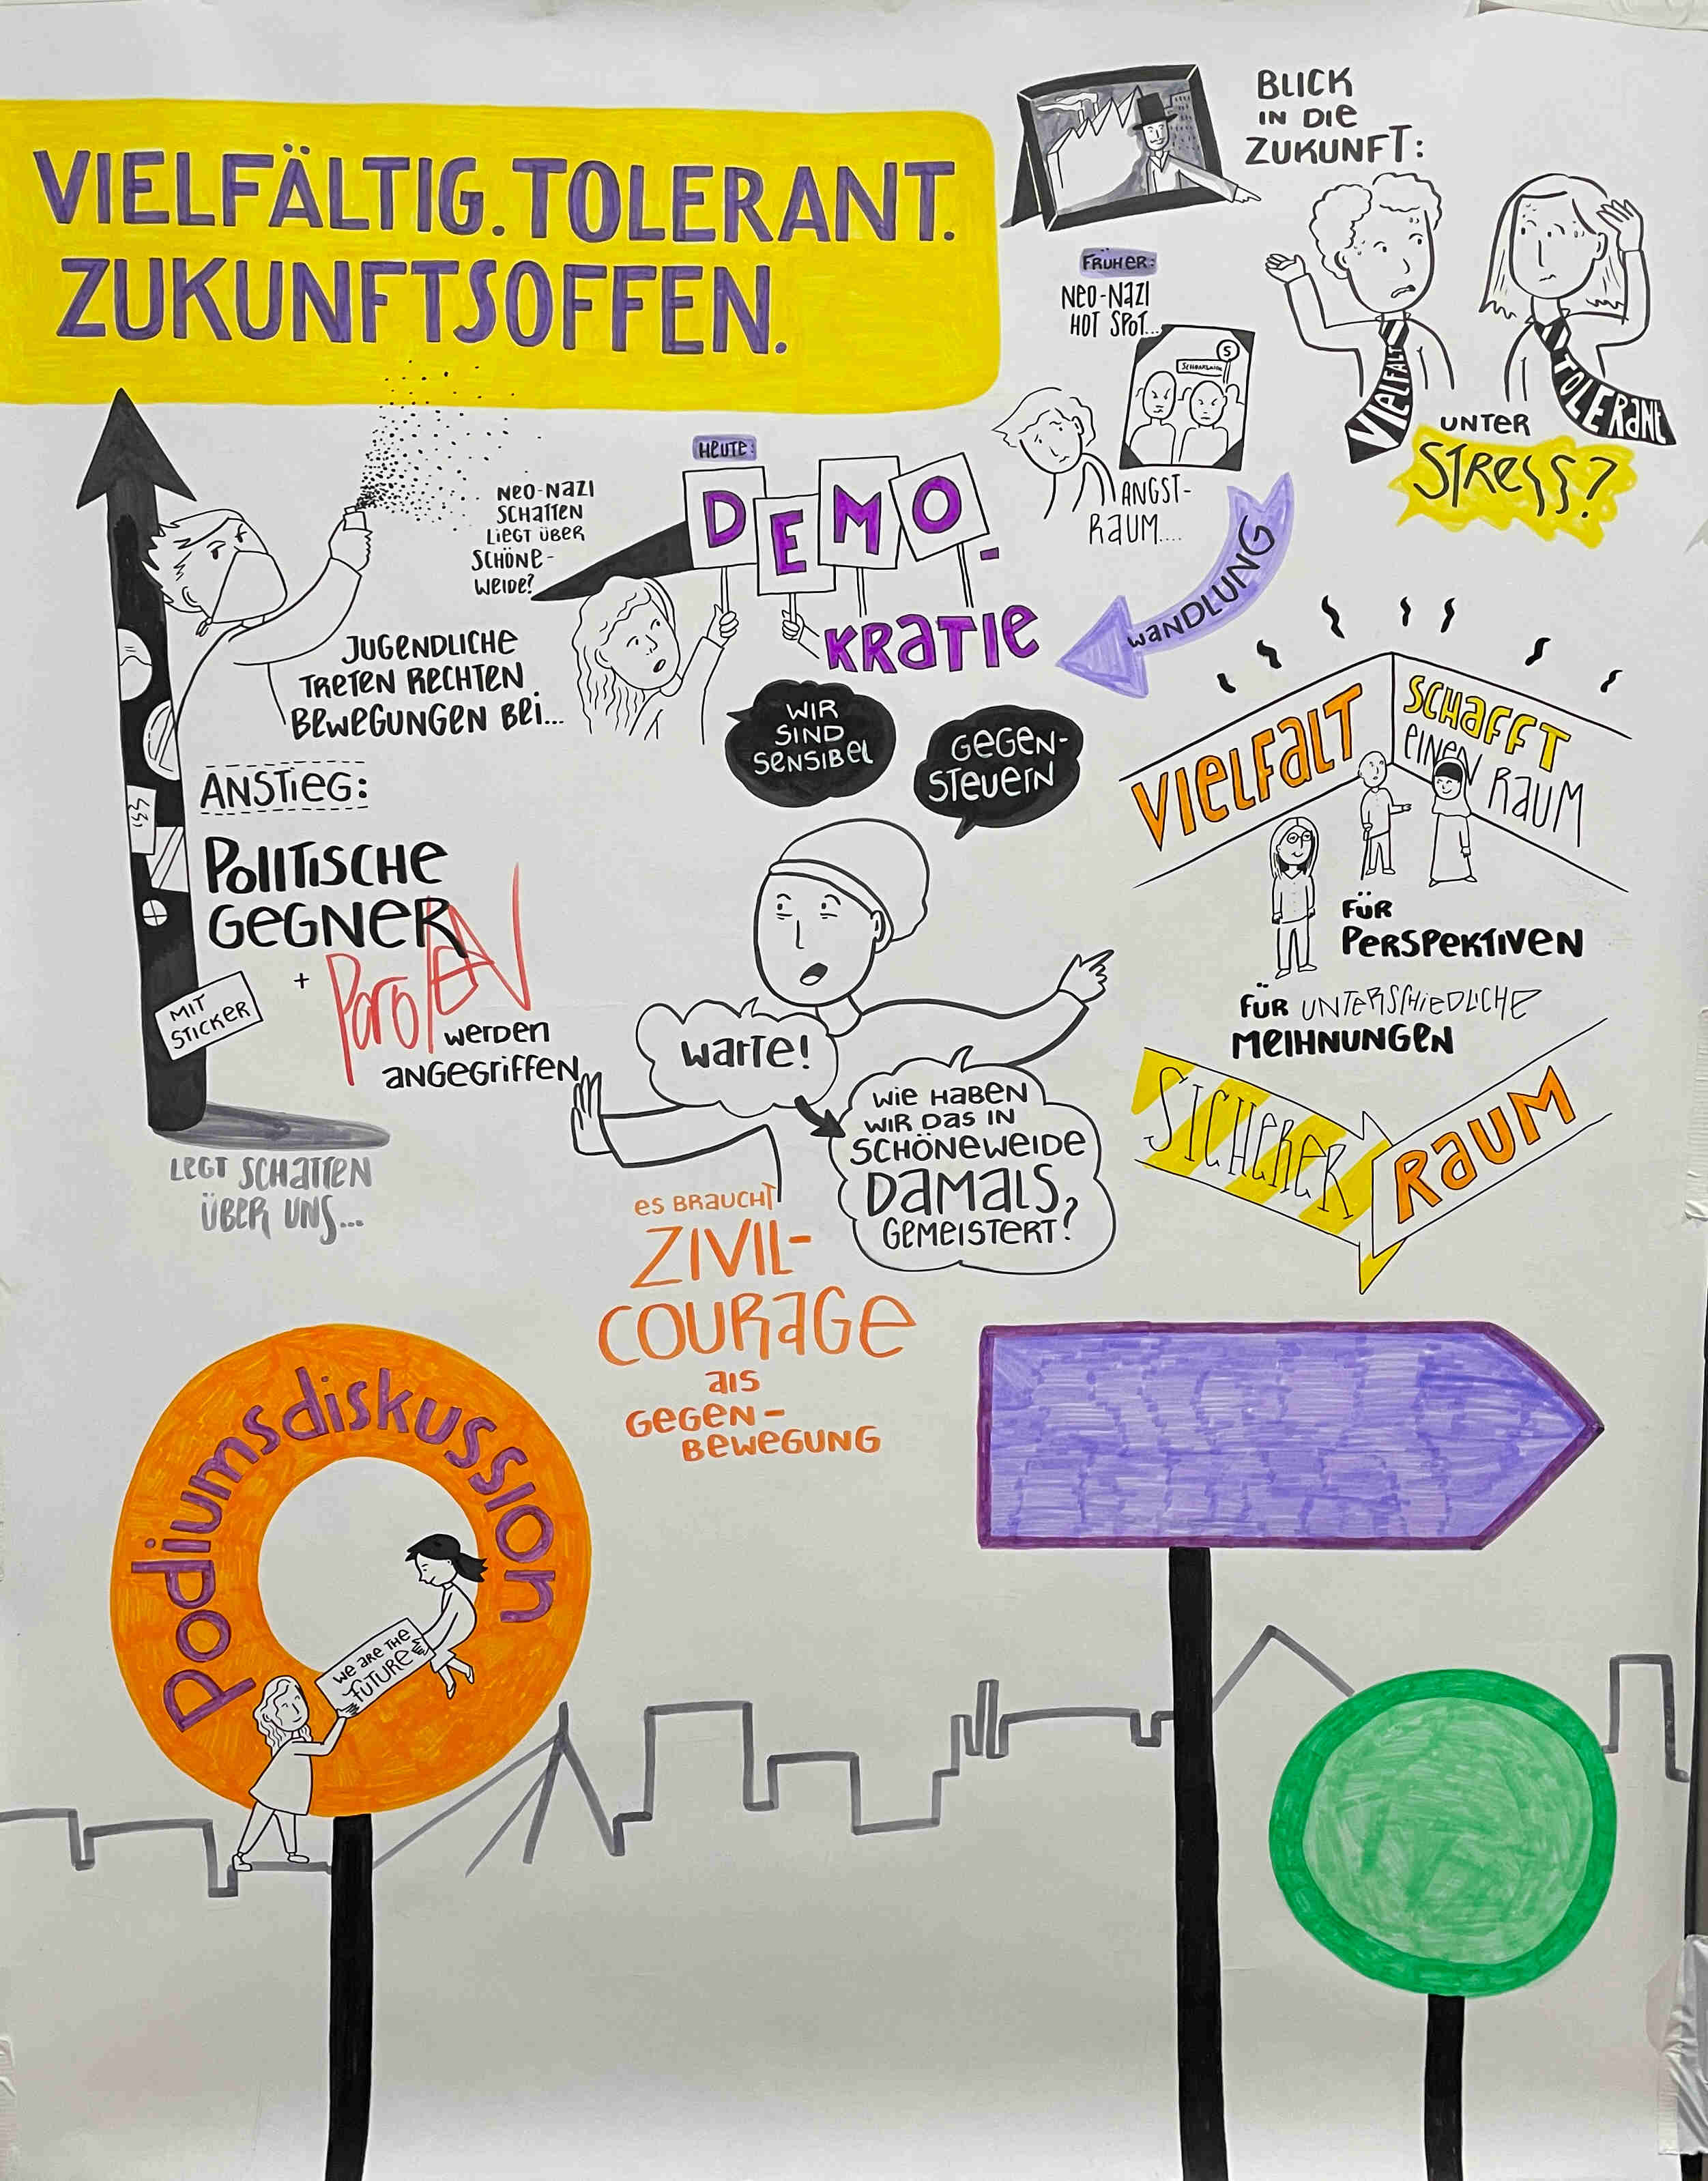 VIELFÄLTIG. TOLERANT.
ZUKUNFTSOFFEN.
BLICK
IN DIE
ZUKUNFT:
VIELFALT
TOLERANT
UNTER
STRESS?
FRÜHER:
NEO-NAZI
HOT SPOT...
S
ANGST-
RAUM....
WANDLUNG
HEUTE:
DEMO-
KRATIE
NEO-NAZI
SCHATTEN
LIEGT ÜBER
SCHÖNE-
WEIDE?
JUGENDLICHE
TRETEN RECHTEN
BEWEGUNGEN BEI...
ANSTIEG:
POLITISCHE
GEGNER
+ PAROLEN
WERDEN
ANGEGRIFFEN
MIT
STICKER
LEGT SCHATTEN
ÜBER UNS...
WIR
SIND
SENSIBEL
GEGEN-
STEUERN
WARTE!
WIE HABEN
WIR DAS IN
SCHÖNEWEIDE
DAMALS
GEMEISTERT?
ES BRAUCHT
ZIVIL-
COURAGE
ALS
GEGEN-
BEWEGUNG
VIELFALT
SCHAFFT
EINEN
RAUM
FÜR
PERSPEKTIVEN
FÜR UNTERSCHIEDLICHE
MEIHNUNGEN
SICHERER
RAUM
Podiumsdiskussion
WE ARE THE
FUTURE